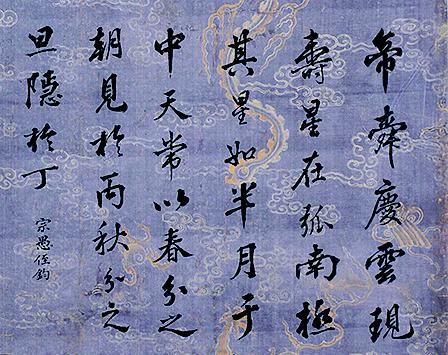 帝舜慶雲現
壽星在弧南極
其星如半月于
中天常以春分之
朝見於丙秋分之
旦隱於丁
宗愚侄鈞